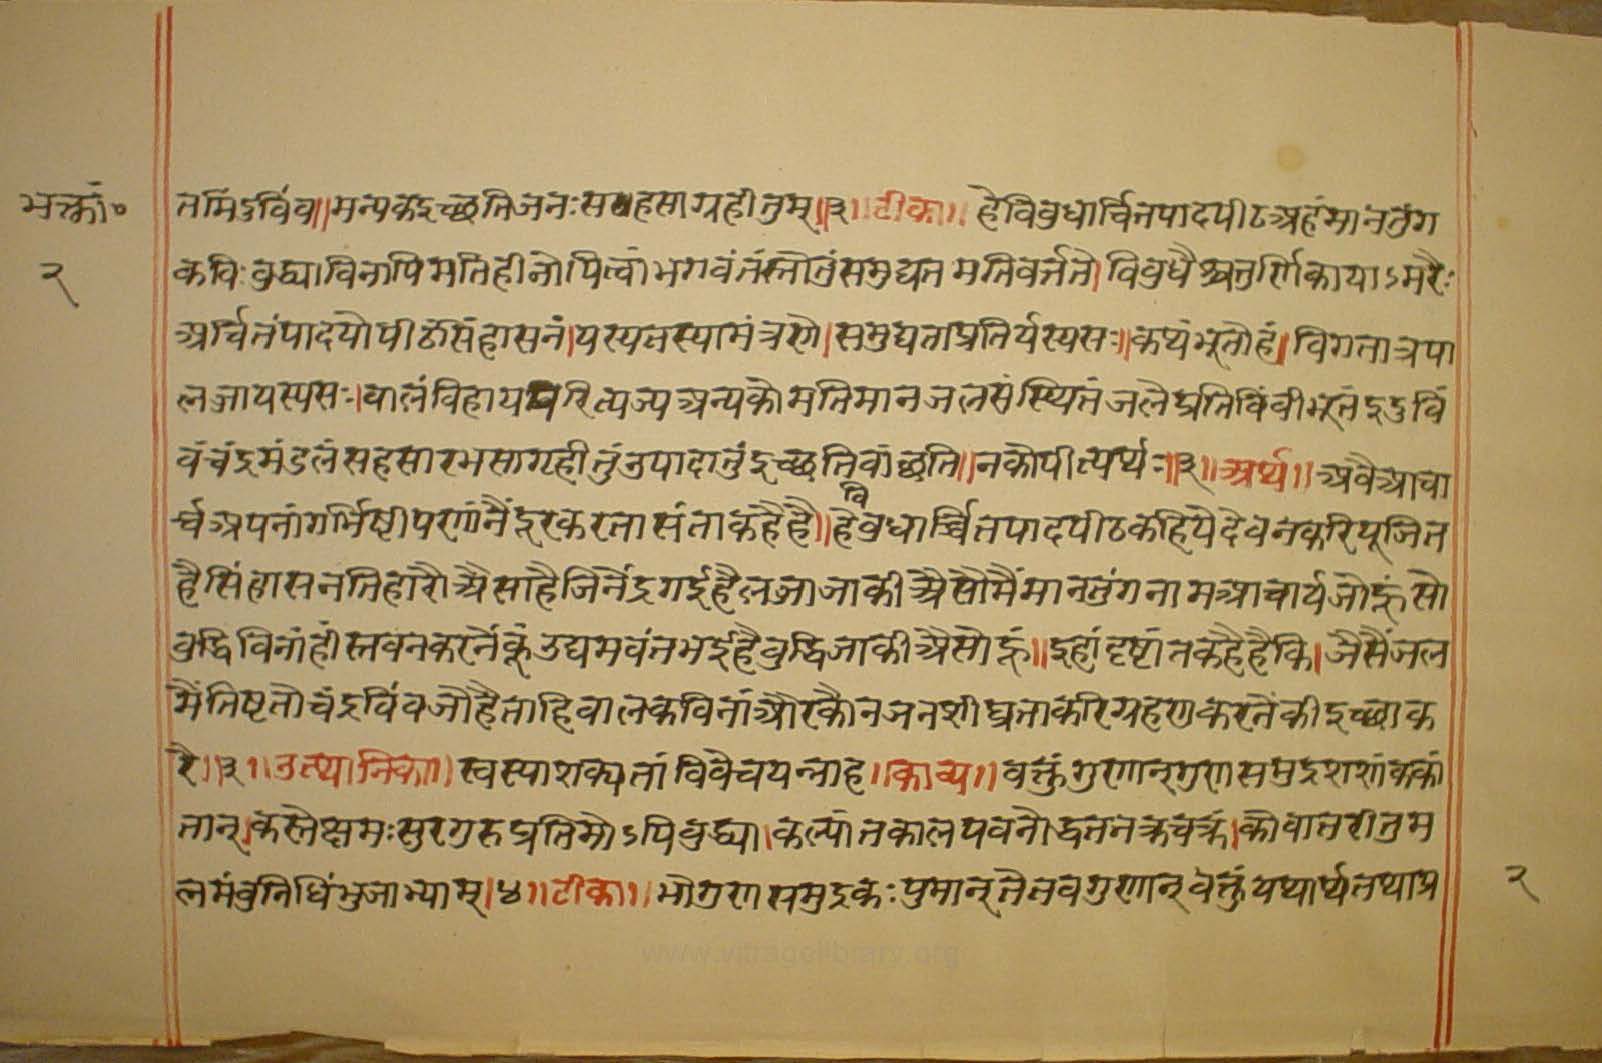 भक्तां०
२
तमिंडुविंव॥मन्यकइच्छतिजनःसहसाग्रहीतुम्॥३॥टीका॥ हेविवुधार्चितपादपीठअहंमानतुंग
कविःवुद्ध्याविनापिमतिहीनोपित्वांभगवंतंस्तोतुंसमुद्यतमतिवर्त्तते।विवुधैश्चतुर्णिकायाऽमरैः
अर्चितंपादयोपीठंसिंहासनं।यस्यतस्यामंत्रणे।समुद्यताप्रतिर्यस्यसः॥कथंभूतोहं॥विगतात्रपा
लज्जायस्यसः।वालंविहायपरित्यज्यअन्यकोमतिमानजलसंस्थितंजलेप्रतिविंवीभूतंइडुविं
वंचंद्रमंडलंसहसारभसागृहीतुंउपादातुंइच्छतिवांछति॥नकोपीत्यर्थः॥३॥अर्थ॥अवैआचा
र्यअपनांगर्भिष्टीपणांनैंदूरकरतासंताकहैहै॥हेविवुधार्च्चितपादपीठकहियेदेवनकरिपूजित
हैसिंहासनतिहारौअैसाहैजिनेंद्रगईहैलज्जाजाकीअैसोमैंमानतुंगनामआचार्यजोहूंसो
वुद्धिविनांहीस्तवनकरनेंकूंउद्यमवंतभईहैवुद्धिजाकीअैसोहूं॥इहांदृष्टांतकहैहैकि।जैसैंजल
मैंतिष्टतोचंद्रविंवजोहैताहिवालकविनांऔरकौनजनशीघ्रताकरिग्रहणकरनेंकीइच्छाक
रै॥३॥उत्थानिका॥स्वस्याशक्यतांविवेचयन्नाह॥काव्य॥वक्तुंगुणान्गुणसमुद्रशशांककां
तान्।कस्तेक्षमःसुरगुरुप्रतिमोऽपिवुद्ध्या।कल्पांतकालपवनोद्धतनक्रचक्रं।कोवातरीतुम
लमंवुनिधिंभुजाभ्याम्।४॥टीका॥भोगुणसमुद्रकःपुमान्तेतवगुणान्वक्तुंयथार्थतयाप्र
२
www.vitragelibrary.org